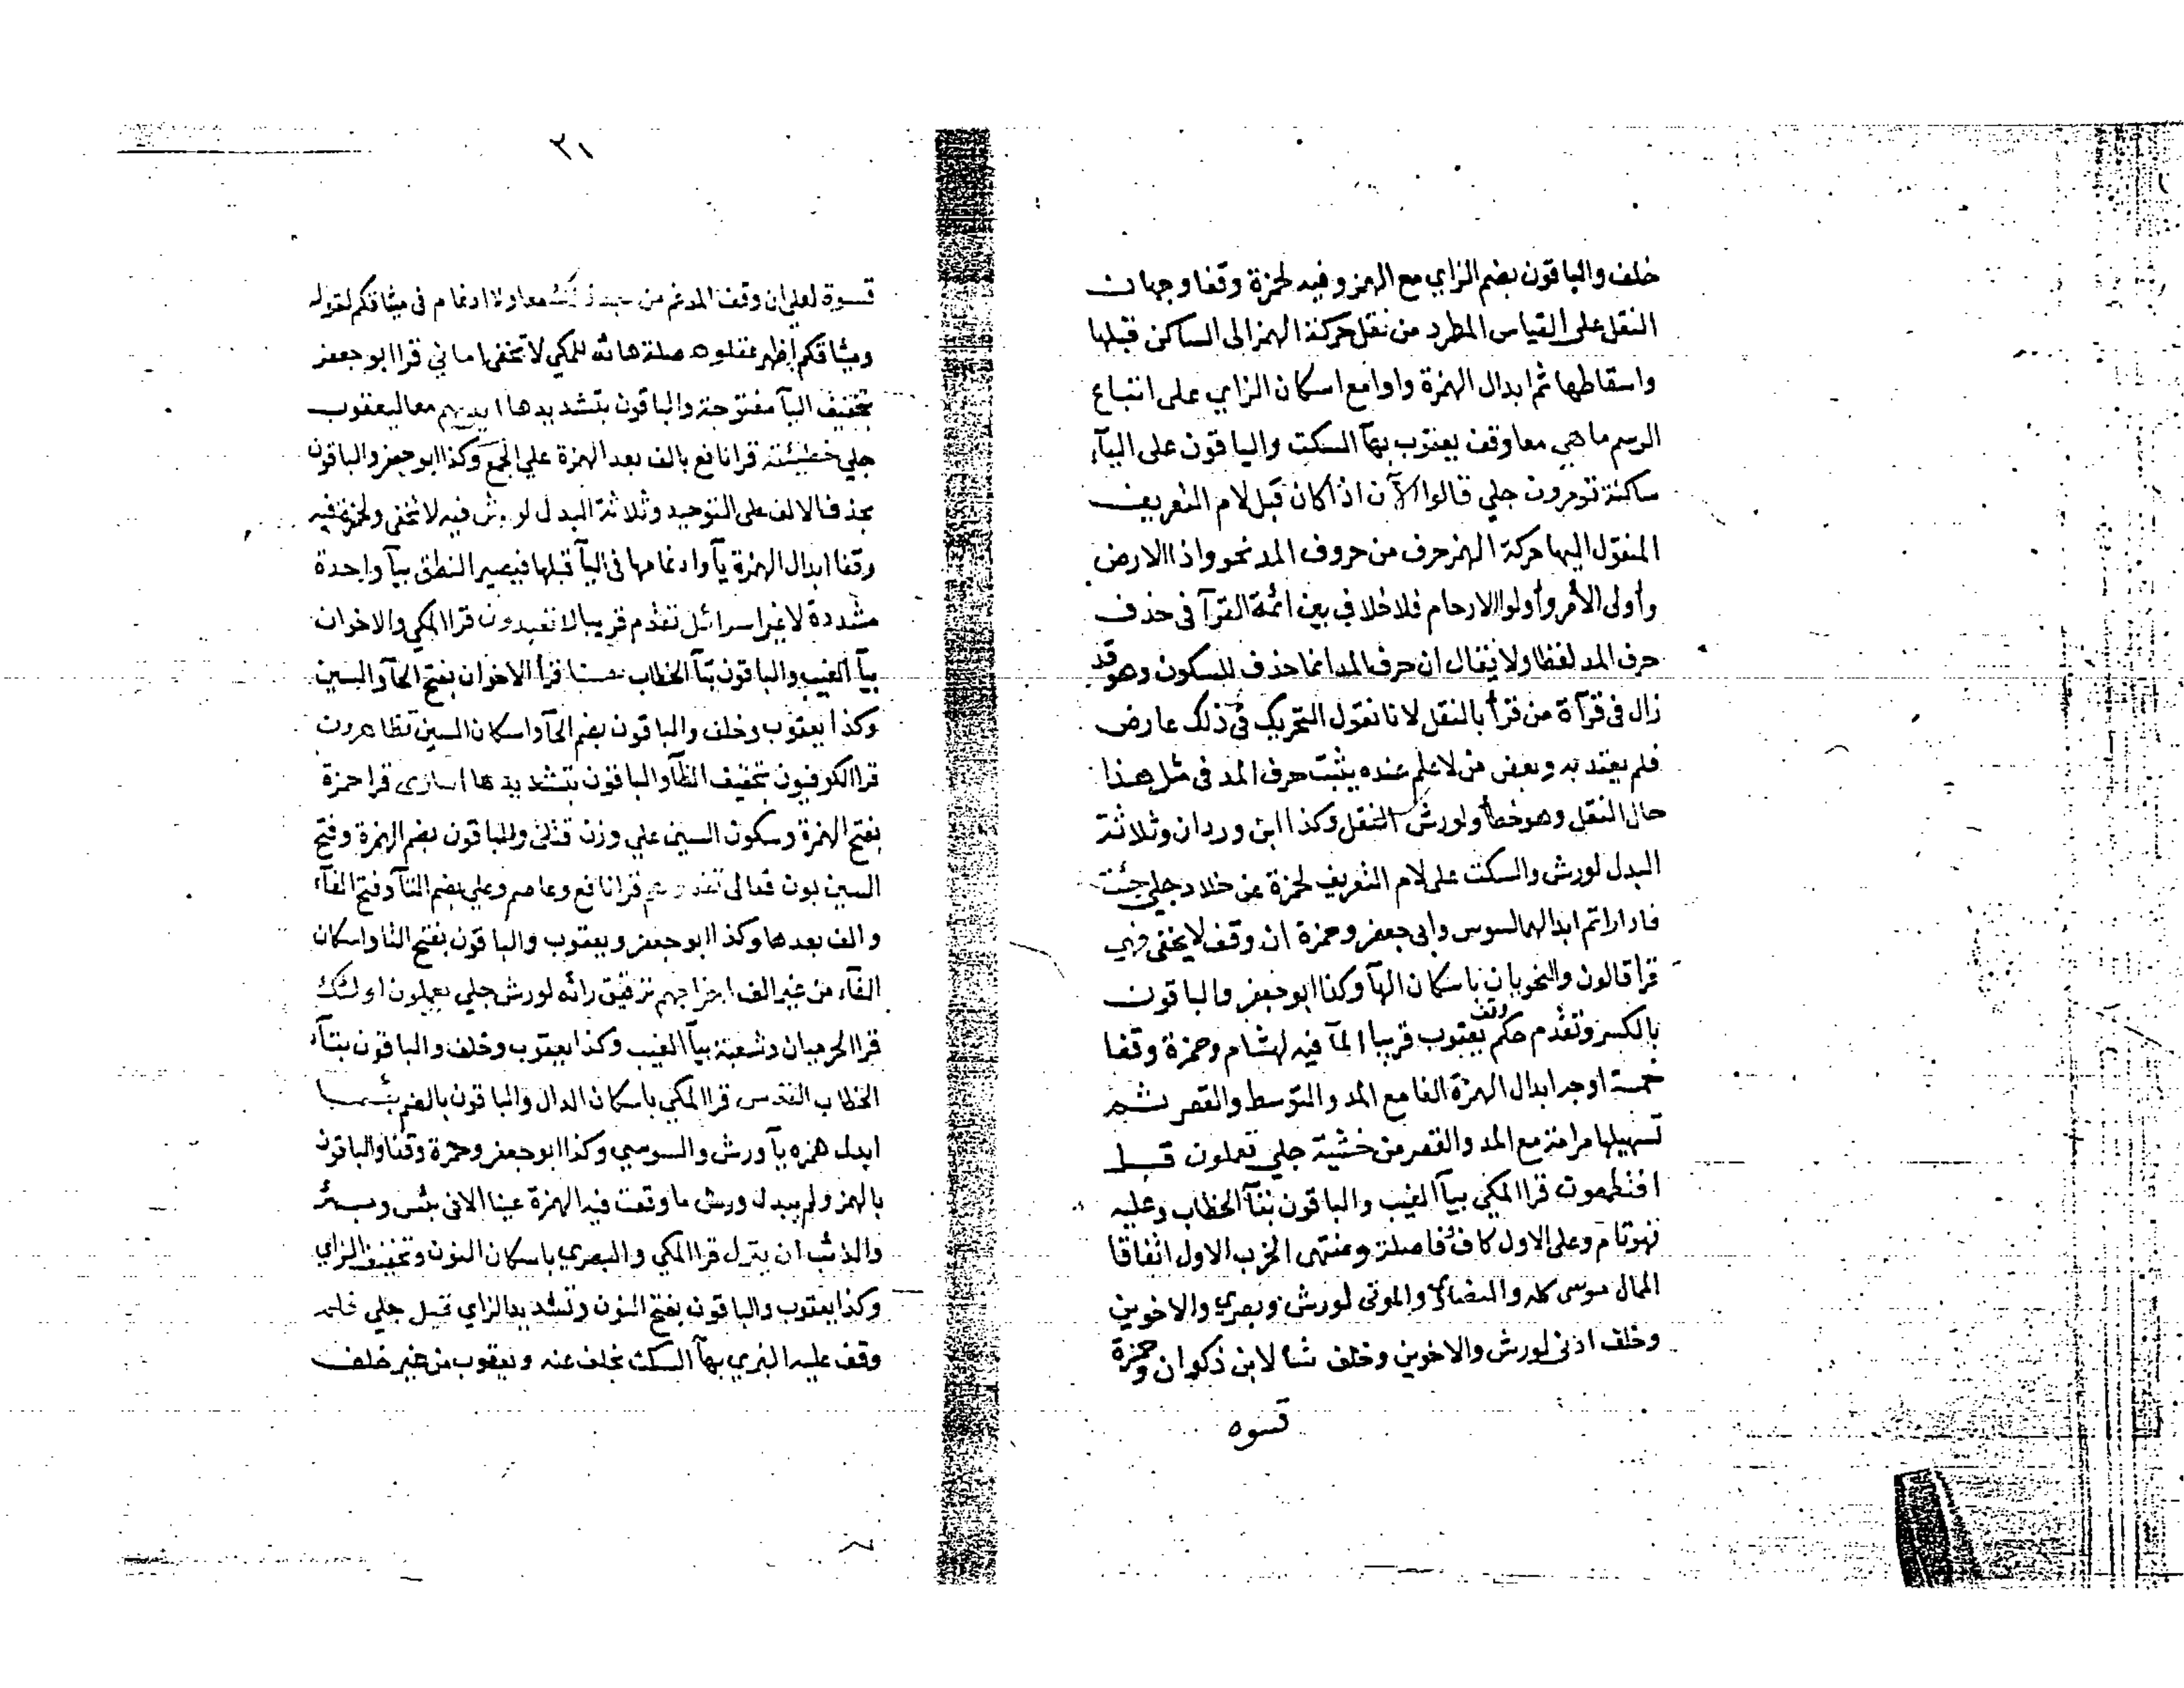 خلف والباقون بضم الزاي مع الهمز وفيه لحمزة وقفا وجهان
النقل على القياس المطرد من نقل حركة الهمز الى الساكن قبلها
واسقاطها ثم ابدال الهمزة واوا مع اسكان الزاي على اتباع
الرسم ما هي معا وقف يعقوب بهآ السكت والباقون على اليآء
ساكنة تومرون جلي قالوا الآن اذا كان قبل لام التعريف
المنقول اليها حركة الهمز حرف من حروف المد نحو واذا الارض
وأولى الأمر وأولوا الارحام فلا خلاف بين ائمة القرآ في حذف
حرف المد لفظا ولا يقال ان حرف المد انما حذف للسكون وهو قد
زال في قرآة من قرأ بالنقل لانا نقول التحريك في ذلك عارض
فلم يعتد به وبعض من لا علم عنده يثبت حرف المد في مثل هذا
حال النقل وهو خطأ ولورش النقل وكذا ابن وردان وثلاثة
البدل لورش والسكت على لام التعريف لحمزة عن خلاد جلي جئت
فادارأتم ابدالها لسوس وابى جعفر وحمزة ان وقف لا يخفى فهي
قرا قالون والنحويان باسكان الهآ وكذا ابو جعفر والباقون
بالكسر وتقدم حكم وقف يعقوب قريبا المآ فيه لهشام وحمزة وقفا
خمسة اوجه ابدال الهمزة الفا مع المد والتوسط والقصر ثم
تسهيلها مرامة مع المد والقصر من خشية جلي تعملون قبل
افتطمعون قرا المكي بيآ الغيب والباقون بتآ الخطاب وعليه
فهو تام وعلى الاول كاف فاصلة ومنتهى الحزب الاول اتفاقا
الممال موسى كله والنصارى والموتى لورش وبصري والاخوين
وخلف ادنى لورش والاخوين وخلف شا لابن ذكوان وحمزة
قسوه
٢١
قسوة لعلي ان وقف المدغم من بعد ذلك معا ولا ادغام في ميثاقكم لقوله
وميثاقكم اظهر عقلوه صلة هائه للمكي لا تخفى اماني قرا ابو جعفر
بتخفيف اليآ مفتوحة والباقون بتشديدها ايديهم معا ليعقوب
جلي خطيئته قرا نافع بالف بعد الهمزة علي الجمع وكذا ابو جعفر والباقون
بحذف الالف على التوحيد وثلاثة البدل لورش فيه لا تخفى ولحمزة فيه
وقفا ابدال الهمزة يآ وادغامها في اليآ قبلها فيصير النطق بيآ واحدة
مشددة لا غير اسرائل تقدم قريبا لا تعبدون قرا المكي والاخوان
بيآ الغيب والباقون بتآ الخطاب حسنا قرأ الاخوان بفتح الحآ والسين
وكذا يعقوب وخلف والباقون بضم الحآ واسكان السين تظاهرون
قرا الكوفيون بتخفيف الظآ والباقون بتشديدها اسارى قرا حمزة
بفتح الهمزة وسكون السين علي وزن قتلى والباقون بضم الهمزة وفتح
السين بوزن فعالى تفدوهم قرا نافع وعاصم وعلي بضم التآ وفتح الفآء
والف بعدها وكذا ابو جعفر ويعقوب والباقون بفتح التا واسكان
الفآء من غير الف اخراجهم ترقيق رائه لورش جلي يعملون اولئك
قرا الحرميان وشعبة بيآ الغيب وكذا يعقوب وخلف والباقون بتآء
الخطاب القدس قرا المكي باسكان الدال والباقون بالضم بئسما
ابدل همزه يآ ورش والسوسي وكذا ابو جعفر وحمزة وقفا والباقون
بالهمز ولم يبدل ورش ما وقعت فيه الهمزة عينا الا في بئس وبئر
والذئب ان ينزل قرا المكي والبصري باسكان النون وتخفيف الزاي
وكذا يعقوب والباقون بفتح النون وتشديد الزاي قيل جلي فلم
وقف عليه البزي بهآ السكت بخلف عنه ويعقوب من غير خلف